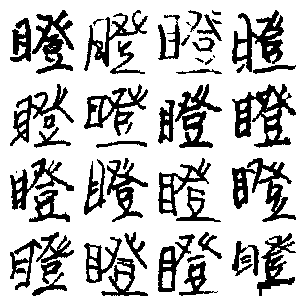 瞪瞪瞪瞪
瞪瞪瞪瞪
瞪瞪瞪瞪
瞪瞪瞪瞪